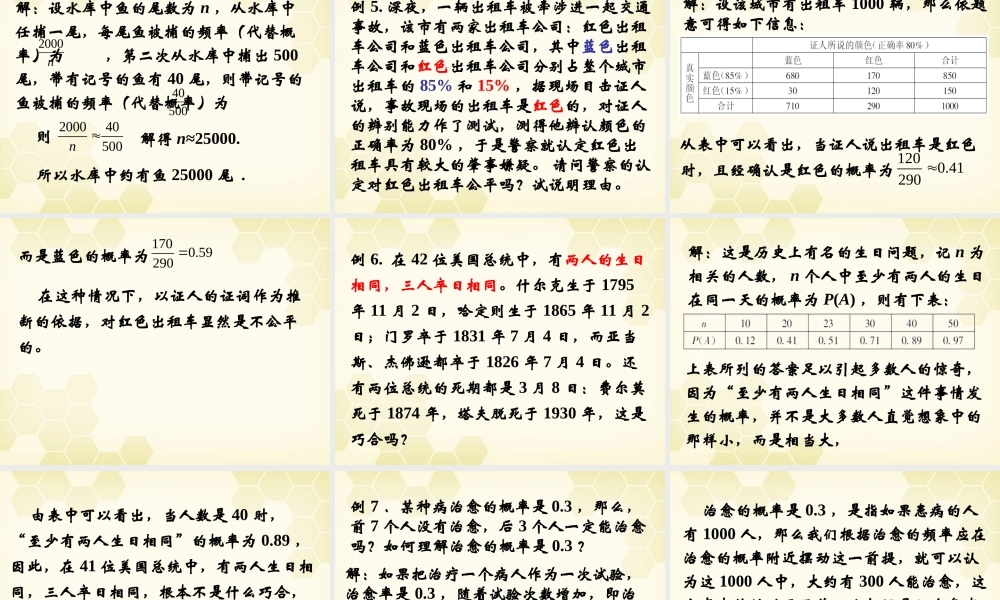 解：设水库中鱼的尾数为 n ，从水库中
任捕一尾，每尾鱼被捕的频率（代替概
率）为 2000/n ，第二次从水库中捕出 500
尾，带有记号的鱼有 40 尾，则带记号的
鱼被捕的频率（代替概率）为 40/500
则 2000/n ≈ 40/500 解得 n≈25000.
所以水库中约有鱼 25000 尾 .
例 5. 深夜，一辆出租车被牵涉进一起交通
事故，该市有两家出租车公司：红色出租
车公司和蓝色出租车公司，其中蓝色出租
车公司和红色出租车公司分别占整个城市
出租车的 85% 和 15% ，据现场目击证人
说，事故现场的出租车是红色的，对证人
的辨别能力作了测试，测得他辨认颜色的
正确率为 80% ，于是警察就认定红色出
租车具有较大的肇事嫌疑。 请问警察的认
定对红色出租车公平吗？试说明理由。
解：设该城市有出租车 1000 辆，那么依题
意可得如下信息：
证人所说的颜色(正确率 80%)
真实颜色
蓝色 红色 合计
蓝色(85%) 680 170 850
红色(15%) 30 120 150
合计 710 290 1000
从表中可以看出，当证人说出租车是红色
时，且经确认是红色的概率为 120/290 ≈0.41
而是蓝色的概率为 170/290 =0.59
在这种情况下，以证人的证词作为推
断的依据，对红色出租车显然是不公平
的。
例 6. 在 42 位美国总统中，有两人的生日
相同，三人卒日相同。什尔克生于 1795
年 11 月 2 日，哈定则生于 1865 年 11 月 2
日；门罗卒于 1831 年 7 月 4 日，而亚当
斯、杰佛逊都卒于 1826 年 7 月 4 日。还
有两位总统的死期都是 3 月 8 日：费尔莫
死于 1874 年，塔夫脱死于 1930 年，这是
巧合吗？
解：这是历史上有名的生日问题，记 n 为
相关的人数， n 个人中至少有两人的生日
在同一天的概率为 P(A) ，则有下表：
n 10 20 23 30 40 50
P(A) 0.12 0.41 0.51 0.71 0.89 0.97
上表所列的答案足以引起多数人的惊奇，
因为“至少有两人生日相同”这件事情发
生的概率，并不是大多数人直觉想象中的
那样小，而是相当大，
由表中可以看出，当人数是 40 时，
“至少有两人生日相同”的概率为 0.89 ，
因此，在 41 位美国总统中，有两人生日相
同，三人卒日相同，根本不是什么巧合，
例 7 ．某种病治愈的概率是 0.3 ，那么，
前 7 个人没有治愈，后 3 个人一定能治愈
吗？如何理解治愈的概率是 0.3 ？
解：如果把治疗一个病人作为一次试验，
治愈率是 0.3 ，随着试验次数增加，即治
治愈的概率是 0.3 ，是指如果患病的人
有 1000 人，那么我们根据治愈的频率应在
治愈的概率附近摆动这一前提，就可以认
为这 1000 人中，大约有 300 人能治愈，这